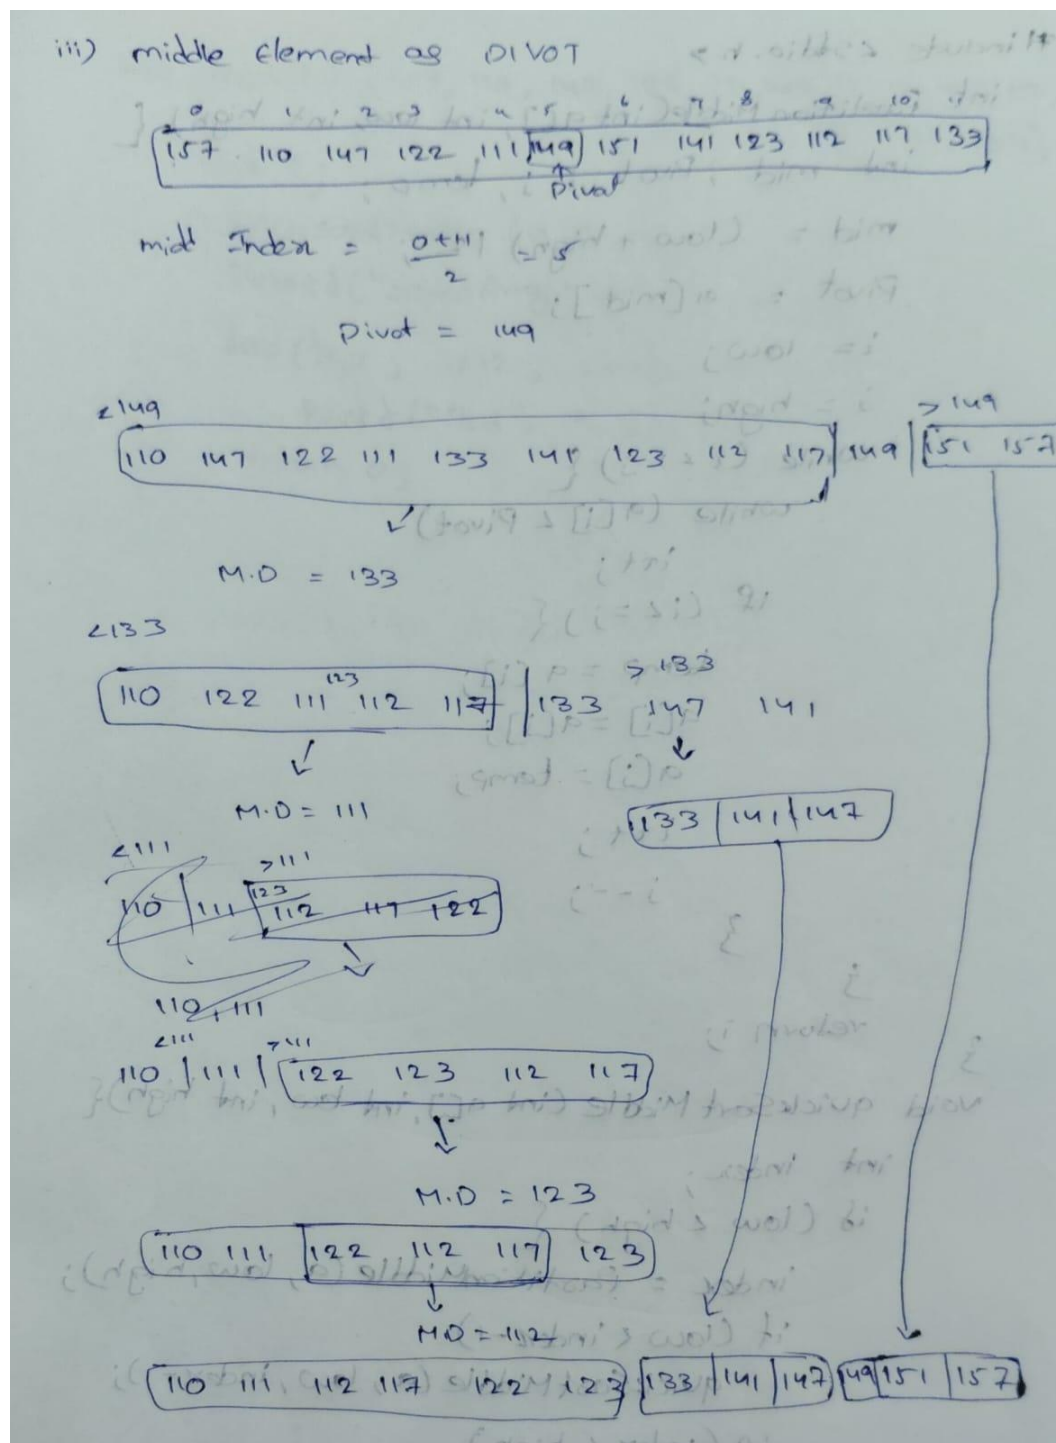 iii) middle Element as PIVOT
0 1 2 3 4 5 6 7 8 9 10 11
157 110 147 122 111 149 151 141 123 112 117 133
Pivot
mid Index = 0+11/2 = 5
Pivot = 149
<149 >149
110 147 122 111 133 141 123 112 117 | 149 | 151 157
M.D = 133
<133
>133
123
110 122 111 112 117 | 133 147 141
M.D = 111
133 | 141 | 147
<111 >111
123
110 | 111 | 112 117 122
110, 111
<111 >111
110 | 111 | 122 123 112 117
M.D = 123
110 111 122 112 117 123
MD = 112
110 111 112 117 122 123 133 | 141 | 147 149 | 151 | 157